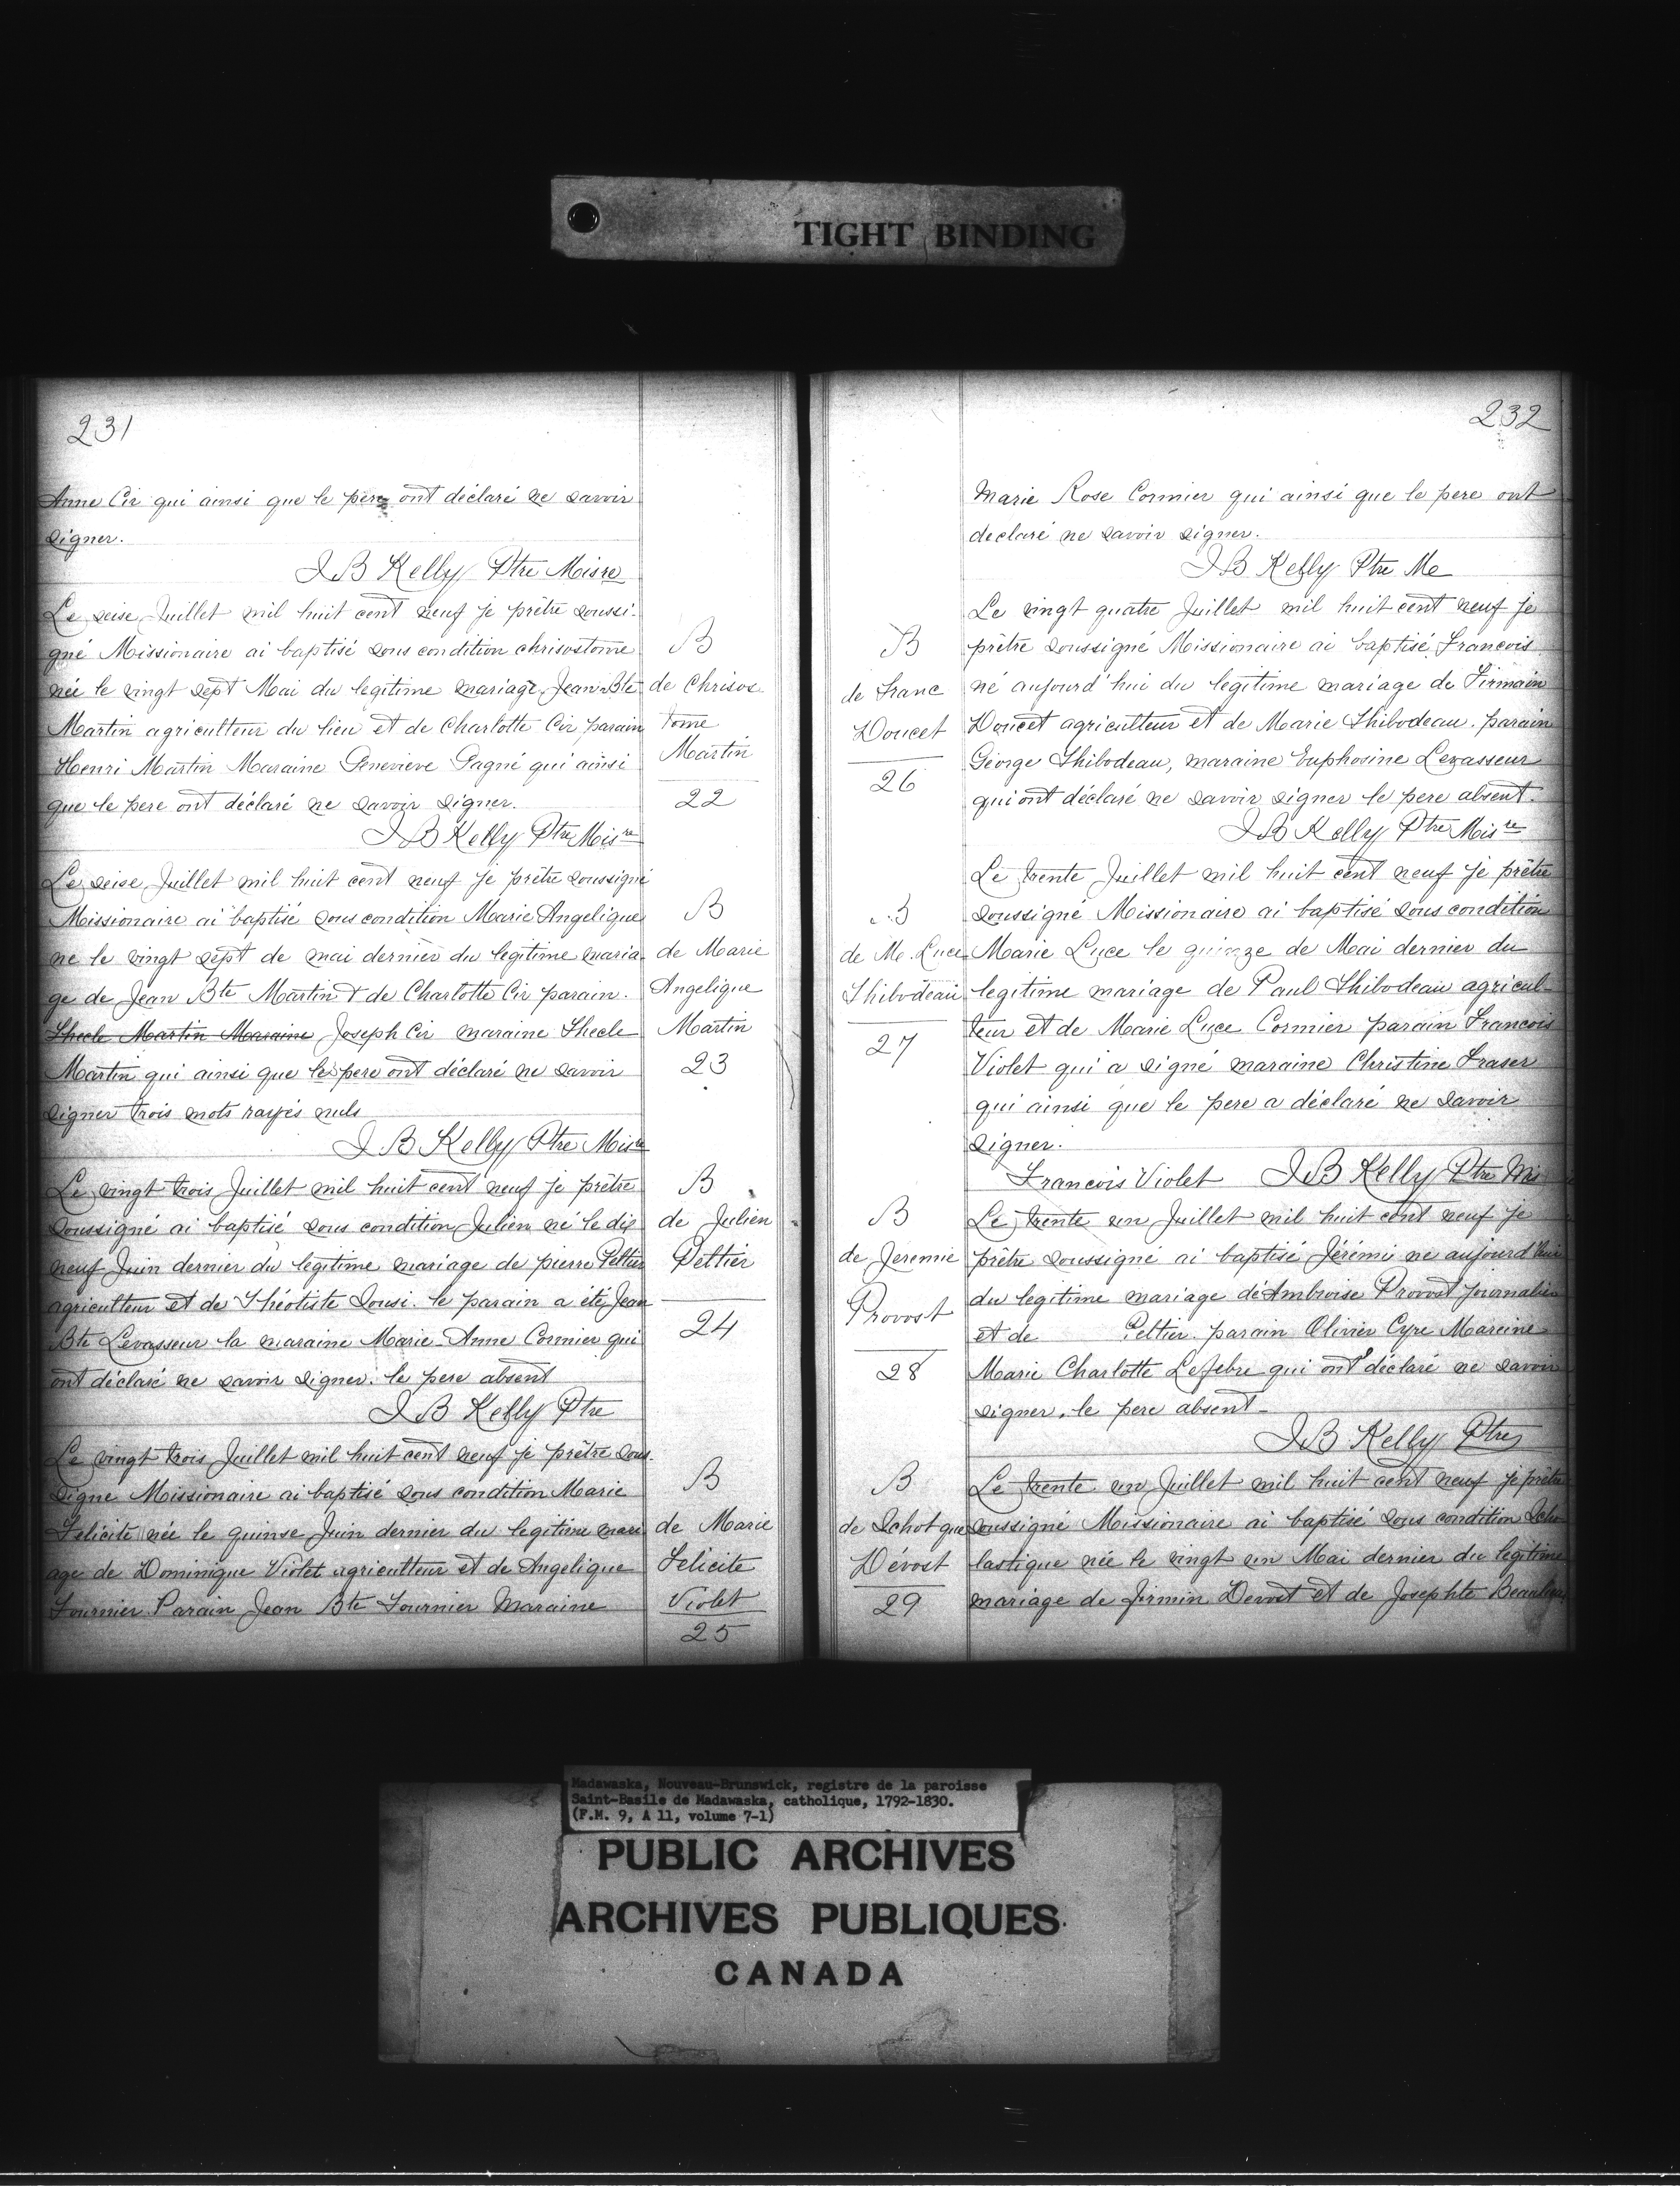 TIGHT BINDING
231
Anne Cir qui ainsi que le père ont déclaré ne savoir
signer.
J B Kelly Ptre Misre
Le seise Juillet mil huit cent neuf je prêtre soussi-
gné Missionaire ai baptisé sous condition chrisostome
née le vingt sept Mai du legitime mariage Jean Bte
Martin agriculteur du lieu et de Charlotte Cir parain
Henri Martin Maraine Genevieve Gagné qui ainsi
que le pere ont déclaré ne savoir signer.
J B Kelly Ptre Misre
B
de Chrisos
tome
Martin
22
Le seise Juillet mil huit cent neuf je prêtre soussigné
Missionaire ai baptisé sous condition Marie Angelique
ne le vingt sept de mai dernier du legitime maria-
ge de Jean Bte Martin & de Charlotte Cir parain.
Thecle Martin Maraine Joseph Cir maraine Thecle
Martin qui ainsi que le pere ont déclaré ne savoir
signer trois mots rayés nuls
J B Kelly Ptre Misre
B
de Marie
Angelique
Martin
23
Le vingt trois Juillet mil huit cent neuf je prêtre
soussigné ai baptisé sous condition Julien né le dix
neuf Juin dernier du legitime mariage de pierre Peltier
agriculteur et de Théotiste Sousi. le parain a été Jean
Bte Levasseur la maraine Marie-Anne Cormier qui
ont déclaré ne savoir signer. le pere absent
J B Kelly Ptre
B
de Julien
Peltier
24
Le vingt trois Juillet mil huit cent neuf je prêtre sous-
signe Missionaire ai baptisé sous condition Marie
Felicite née le quinse Juin dernier du legitime mari
age de Dominique Violet agriculteur et de Angelique
Fournier Parain Jean Bte Fournier Maraine
B
de Marie
Felicite
Violet
25
232
Marie Rose Cormier qui ainsi que le pere ont
declaré ne savoir signer.
J B Kelly Ptre Me
B
de Franc
Doucet
26
Le vingt quatre Juillet mil huit cent neuf je
prêtre soussigné Missionaire ai baptisé Francois
né aujourd'hui du legitime mariage de Firmain
Doucet agriculteur et de Marie Thibodeau. parain
George Thibodeau, maraine Euphosine Levasseur
qui ont déclaré ne savoir signer le pere absent.
J B Kelly Ptre Misre
B
de M. Luce
Thibodeau
27
Le trente Juillet mil huit cent neuf je prêtre
soussigné Missionaire ai baptisé sous condition
Marie Luce le quinze de Mai dernier du
legitime mariage de Paul Thibodeau agricul-
teur et de Marie Luce Cormier parain Francois
Violet qui a signé maraine Christine Fraser
qui ainsi que le pere a déclaré ne savoir
signer.
Francois Violet J B Kelly Ptre Mis
B
de Jeremie
Provost
28
Le trente un Juillet mil huit cent neuf je
prêtre soussigné ai baptisé Jérémi ne aujourd'hui
du legitime mariage de Ambroise Provost journalier
et de Peltier. parain Olivier Cyre Mareine
Marie Charlotte Lefebre qui ont déclaré ne savoir
signer. le pere absent-
J B Kelly Ptre
B
de Schot que
Dévost
29
Le trente un Juillet mil huit cent neuf je prêtre
soussigné Missionaire ai baptisé sous condition Scho
lastique née le vingt un Mai dernier du legitime
mariage de firmin Devost et de Josephte Beaulieu
Madawaska, Nouveau-Brunswick, registre de la paroisse
Saint-Basile de Madawaska, catholique, 1792-1830.
(F.M. 9, A 11, volume 7-1)
PUBLIC ARCHIVES
ARCHIVES PUBLIQUES
CANADA